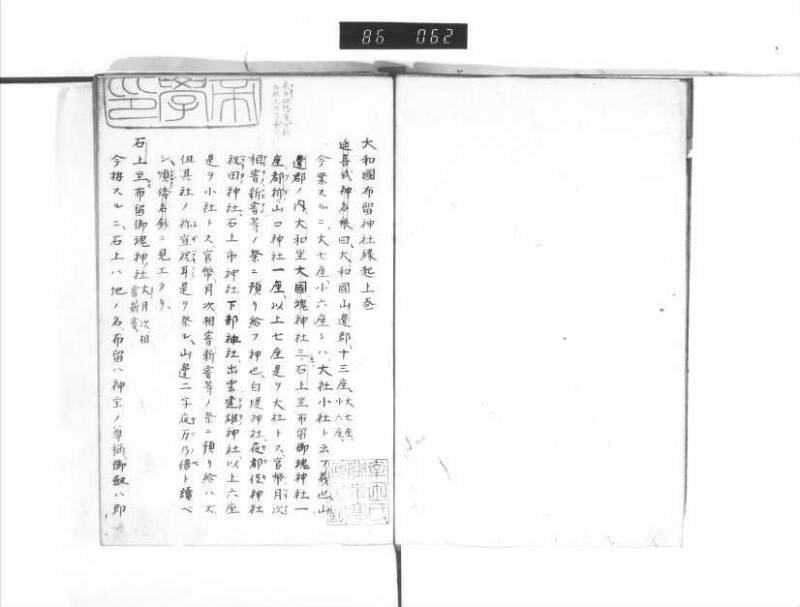 86 062
大和國布留神社縁起上巻
延喜式神名帳曰、大和國山邊郡、十三座、大七座、小六座、
今業スルニ、大七座、小六座トハ、大社小社ト云フ義也、山
邊郡ノ内、大和坐大國魂神社三、石上坐布留御魂神社一
座、都祈山口神社一座、以上七座、是ヲ大社トス、官幣、月次
相嘗新嘗等ノ祭ニ預リ給フ神也、白堤神社、夜都伎神社
祝田神社、石上市神社、下部神社、出雲建雄神社、以上六座
是ヲ小社トス、官幣、月次相嘗新嘗等ノ祭ニ預リ給ハズ、
但其社ノ祢宜祝耳是ヲ祭ル、山邊二字夜万乃倍ト讀ベ
シ、順倭名鈔ニ見エタリ、
石上坐布留御魂神社、大、月次相嘗新嘗、
今按スルニ、石上ハ地ノ名、布留ハ神宝ノ尊稱、御劔ハ即